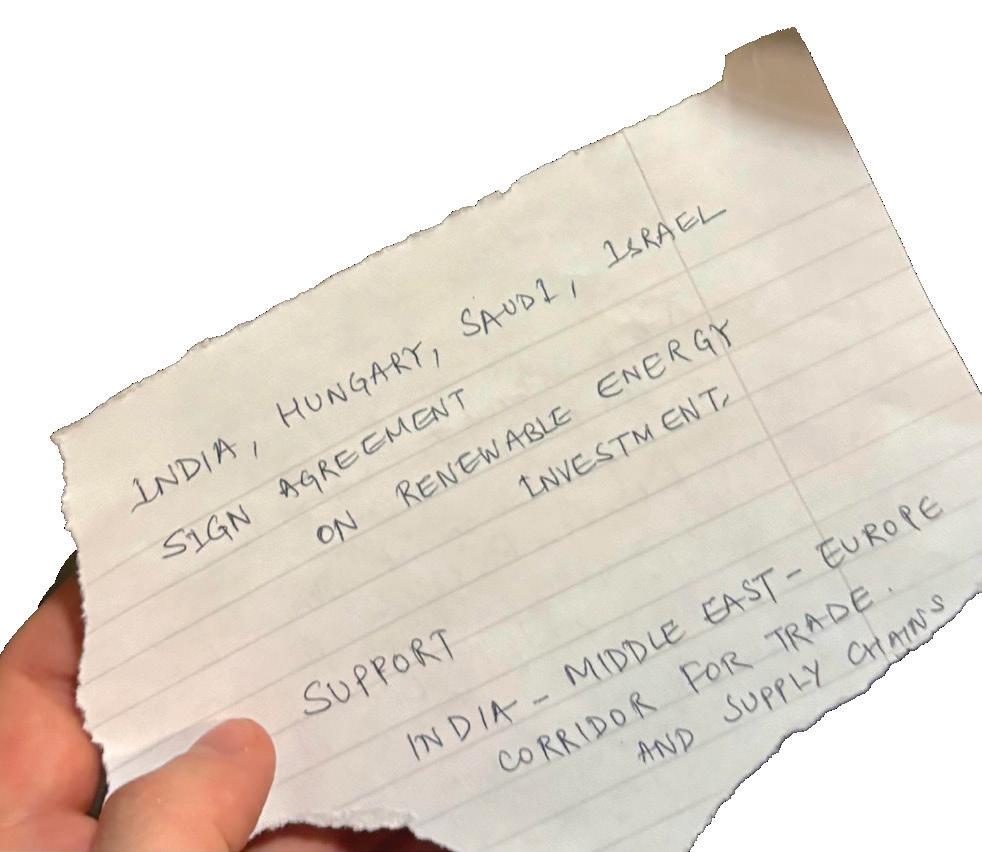 INDIA, HUNGARY, SAUDI, ISRAEL
SIGN AGREEMENT
ON RENEWABLE ENERGY
INVESTMENT.
SUPPORT
INDIA - MIDDLE EAST - EUROPE
CORRIDOR FOR TRADE.
AND SUPPLY CHAINS